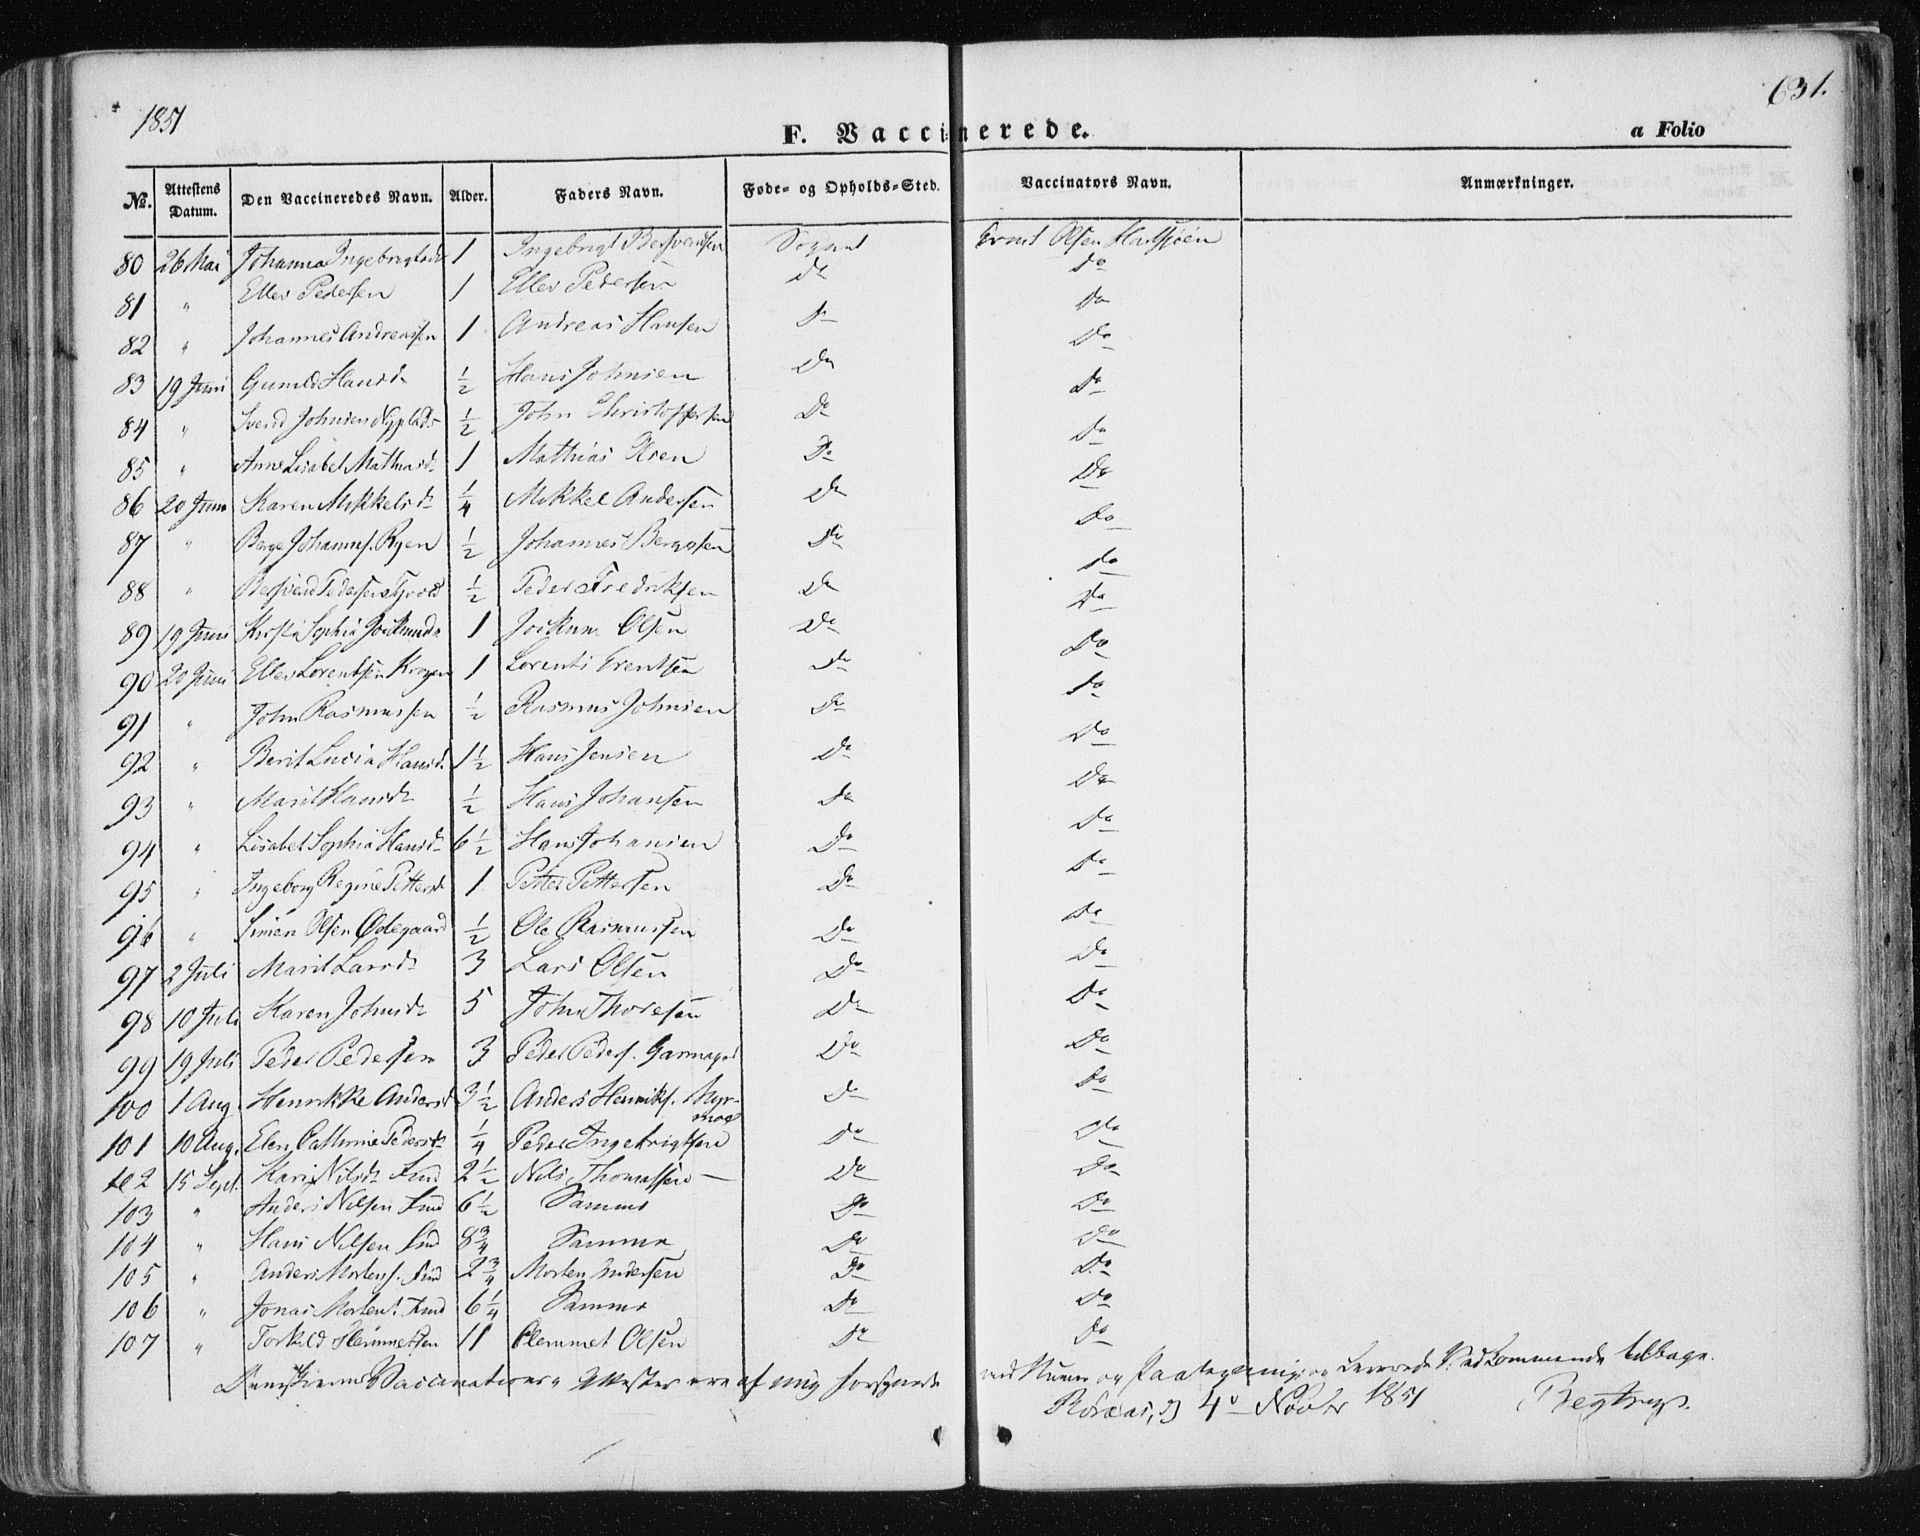 1851
631.
F. Vaccinerede.
a Folio
No. Attestens Datum. Den Vaccineredes Navn. Alder. Faders Navn. Føde- og Opholds-Sted. Vaccinators Navn. Anmærkninger.
80 26 Mai Johanna Ingebrigtsdr 1 Ingebrigt Bersvendsen Sognet Ernst Olsen
81 " Ellev Pedersen 1 Ellev Pedersen Do Do
82 " Johannes Andreassen 1 Andreas Hansen Do Do
83 19 Juni Gunild Hansdr 1/2 Hans Johnsen Do Do
84 " Svend Johnsen 1/2 John Christoffersen Do Do
85 " Anne Lisabet Mathiasdr 1 Mathias Do Do
86 20 Juni Karen Mikkelsdr 1/4 Mikkel Andersen Do Do
87 " Berge Johannes. Ryen 1/2 Johannes Bergesen Do Do
88 " Bersvend Pedersen 1/2 Peder Fredriksen Do Do
89 19 Juni Sophia Jockumsdr 1 Jockum Olsen Do Do
90 20 Juni Ellev Lorentsen 1 Lorents Erentsen Do Do
91 " John Rasmussen 1/2 Rasmus Johnsen Do Do
92 " Berit Lucia Hansd. 1 1/2 Hans Jensen Do Do
93 " Marit Hansdr 1/2 Hans Johansen Do Do
94 " Lisabet Sophia Hansdr 6 1/2 Hans Johansen Do Do
95 " Ingeborg Regine Pettersdr 1 Petter Pettersen Do Do
96 " Simen Olsen Ødegaard 1/2 Ole Rasmussen Do Do
97 2 Juli Marit Larsdr 3 Lars Olsen Do Do
98 10 Juli Karen Johnsdr 5 John Thoresen Do Do
99 19 Juli Peder Pedersen 3 Peder Peders. Do Do
100 1 Aug. Henrikke Andersd 3 1/2 Anders Henriks. Nyr-
moe Do Do
101 10 Aug. Elen Cathrine Pedersdr 1/4 Peder Ingebrigtsen Do Do
102 15 Sept. Kari Nilsdr Find 2 1/2 Nils Thomassen — Do Do
103 " Anders Nilsen Find 6 1/2 Samme Do Do
104 " Hans Nilsen Find 8 3/4 Samme Do Do
105 " Anders Mortens. Find 2 3/4 Morten Andersen Do Do
106 " Jonas Mortens. Find 6 1/4 Samme Do Do
107 " Torkild Klemmetsen 11 Clemmet Olsen Do Do
Vaccinations Attester ere af mig forsynede med Numer og Paategning og Leverede Vedkommende tilbage.
Røraas, d 4 Novbr 1851 Begtrup.